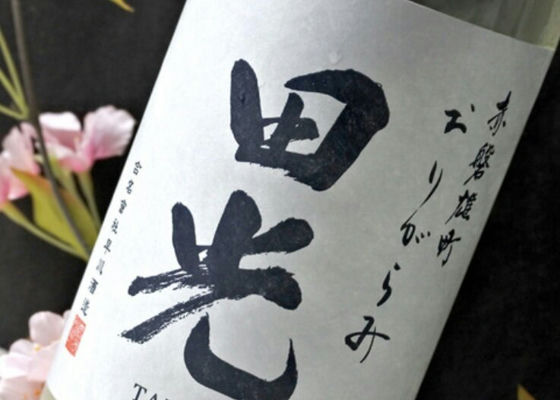 赤磐雄町
おりがらみ
田光
合名會社早川酒造
TA